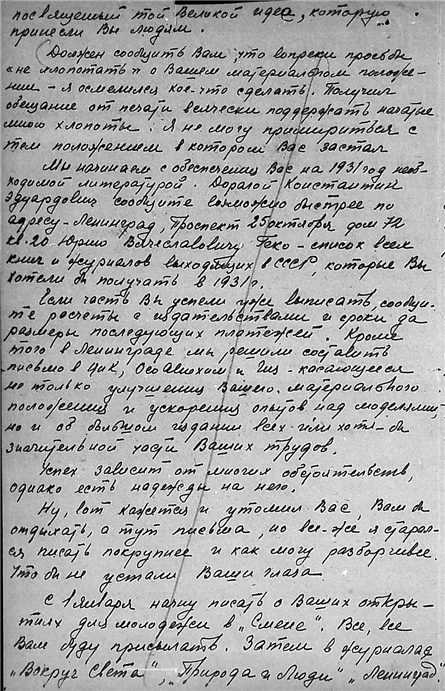 посвященный той Великой идеа, которую
принесли Вы людям.
Должен сообщить Вам, что вопреки просьбы
"не хлопотать" о Вашем материальном положе-
нии - я осмелился кое-что сделать. Получил
обещание от печати всячески поддержать начатые
мною хлопоты. Я не могу примириться с
тем положением в котором Вас застал
Мы начинаем с обеспечения Вас на 1931 год необ-
ходимой литературой. Дорогой Константин
Эдуардович сообщите возможно быстрее по
адресу - Ленинград, Проспект 25 октября дом 72
кв. 20 Юрию Вячеславовичу Геко - список всех
книг и журналов выходящих в СССР, которые Вы
хотели бы получать в 1931 г.
Если часть Вы успели уже выписать, сообщи-
те расчеты с издательствами и сроки да
размеры последующих платежей. Кроме
того в Ленинграде мы решили составить
письмо в ЦИК, Осоавиохим и - касающееся
не только улучшения Вашего материального
положения и ускорения опытов над моделями,
но и об издании всех или хотя-бы
значительной части Ваших трудов.
Успех зависит от многих обстоятельств,
однако есть надежды на него.
Ну, вот кажется и утомил Вас, Вам бы
отдыхать, а тут письма, но все-же я старал-
ся писать покрупнее и как могу разборчивее.
Что бы не устали Ваши глаза
С 1 января начну писать о Ваших откры-
тиях для молодежи в "Смене". Все, все
Вам буду присылать. Затем в журналах
"Вокруг Света", "Природа и Люди" "Ленинград"